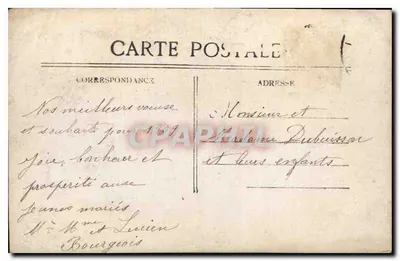 CARTE POSTALE
CORRESPONDANCE
Nos meilleurs voeux
et souhaits pour
joie, bonheur et
prospérité aux
jeunes mariés
Mr Mme et Lucien
Bourgeois
ADRESSE
Monsieur et
Madame Dubuisson
et leurs enfants
CPAPHIL